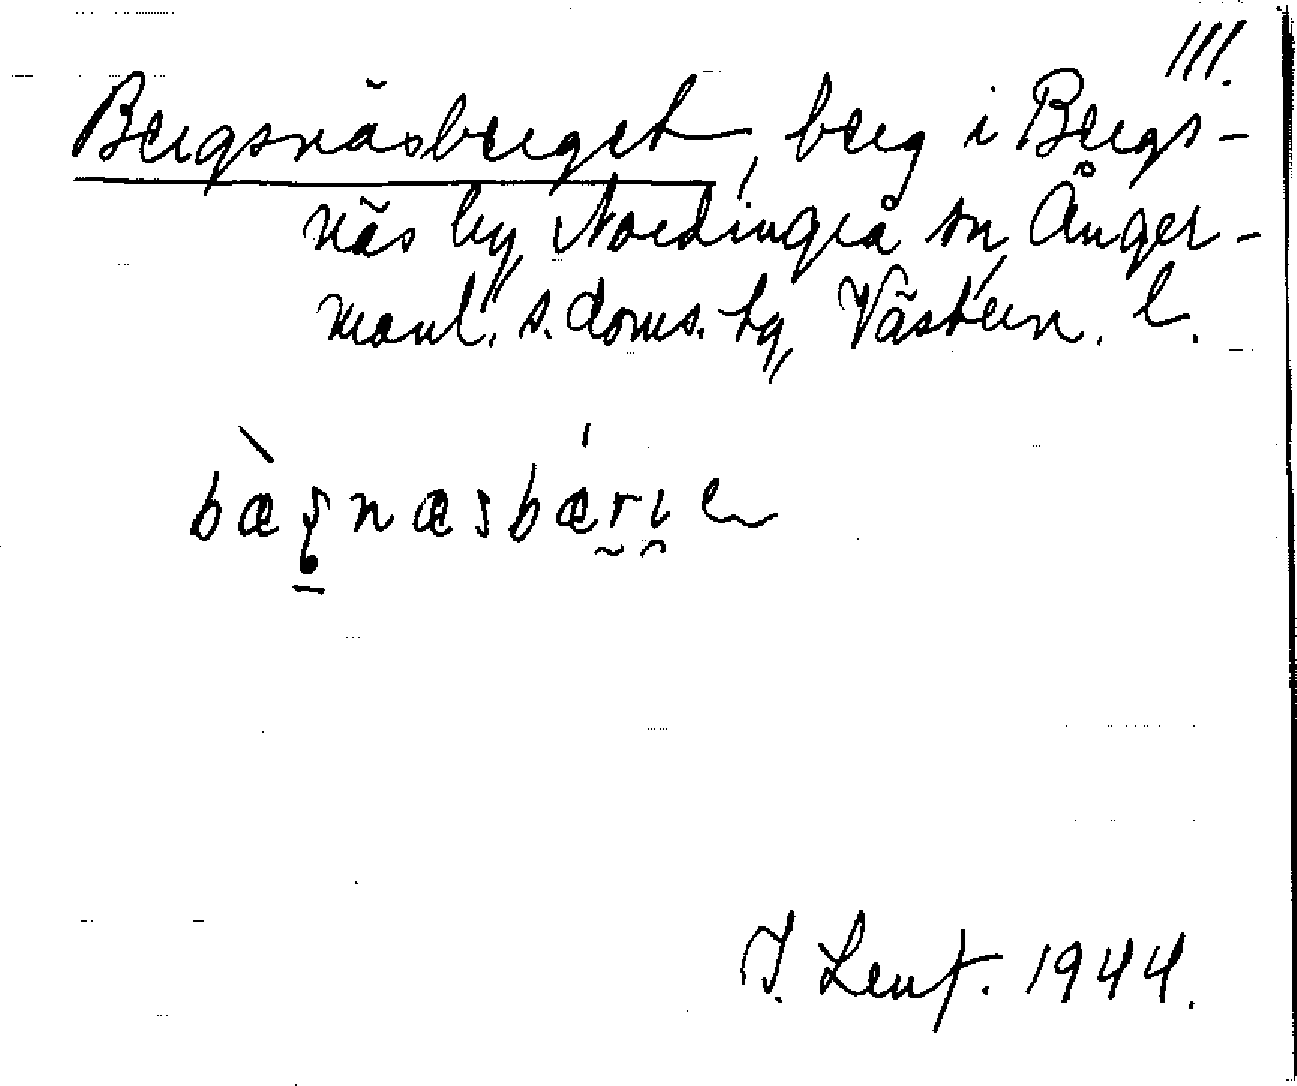 III.
Bergsnäsberget, berg i Bergs-
näs by, Nordingrå sn, Ånger-
manl. s. doms. tg, Västern. l.
J. Lent. 1944.